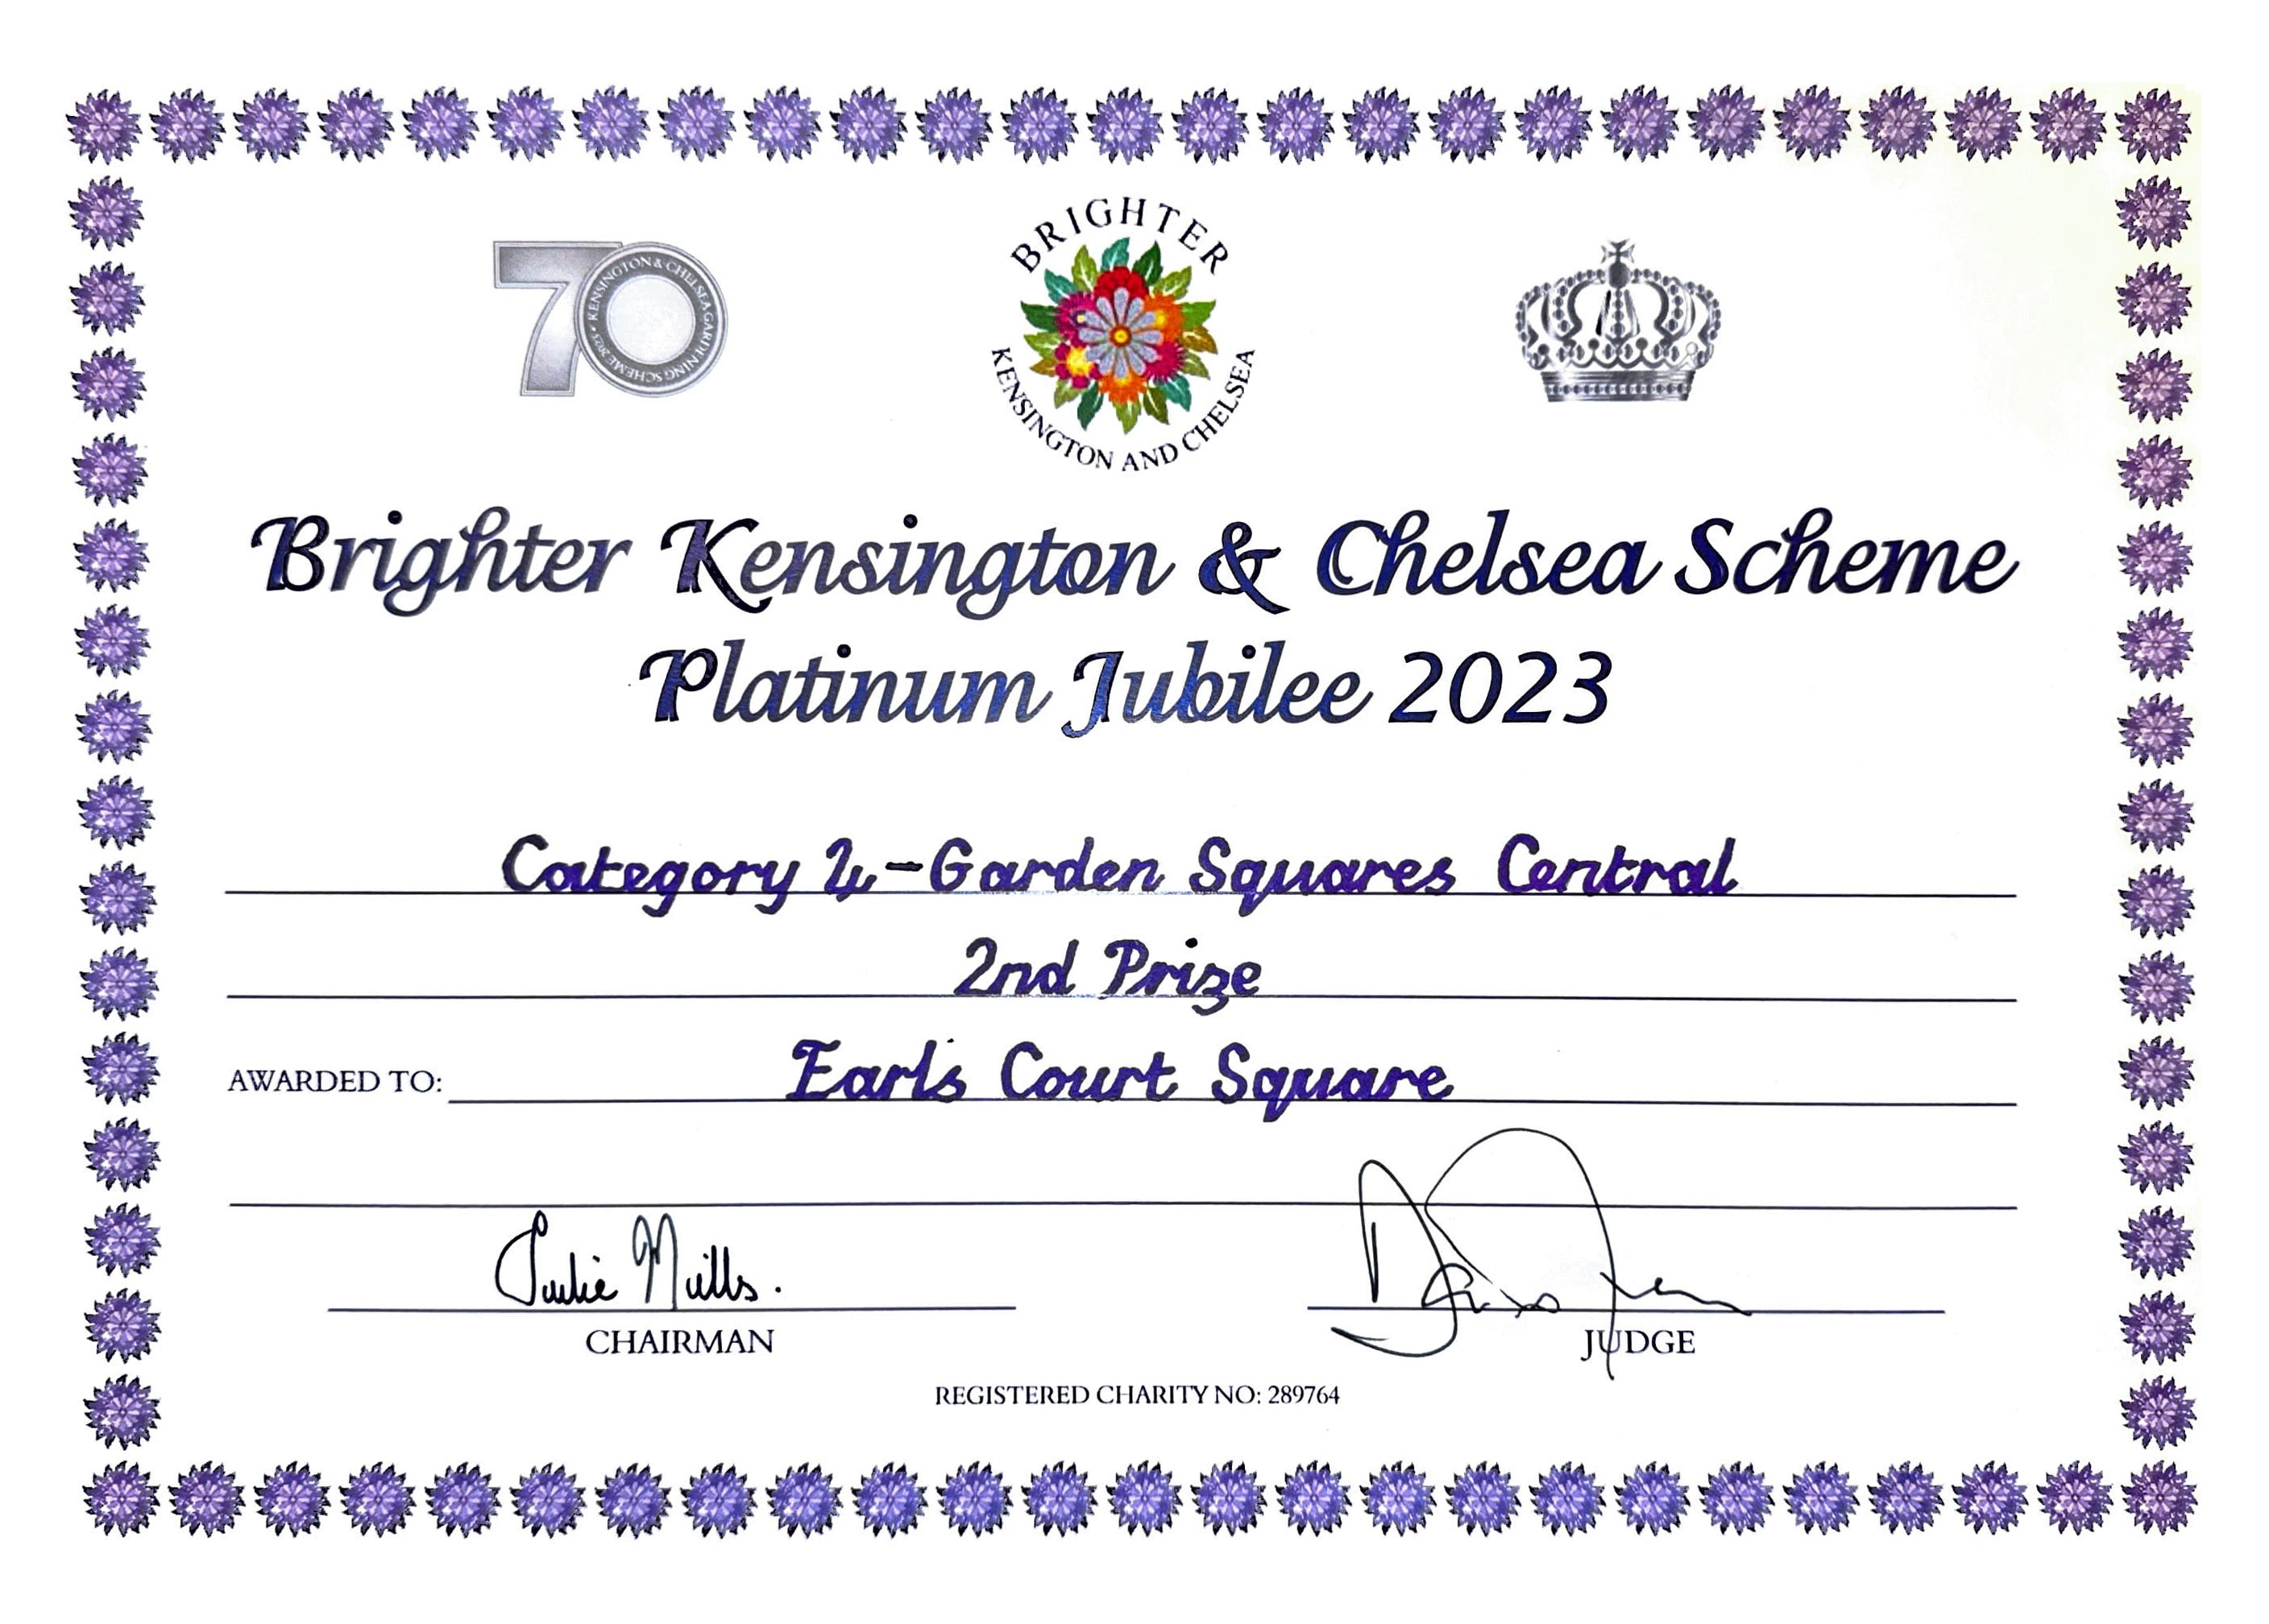 70
KENSINGTON & CHELSEA GARDENING SCHEME 2023
BRIGHTER
KENSINGTON AND CHELSEA
Brighter Kensington & Chelsea Scheme
Platinum Jubilee 2023
Category 4 - Garden Squares Central
2nd Prize
AWARDED TO: Earl's Court Square
Julie Mills.
CHAIRMAN
JUDGE
REGISTERED CHARITY NO: 289764